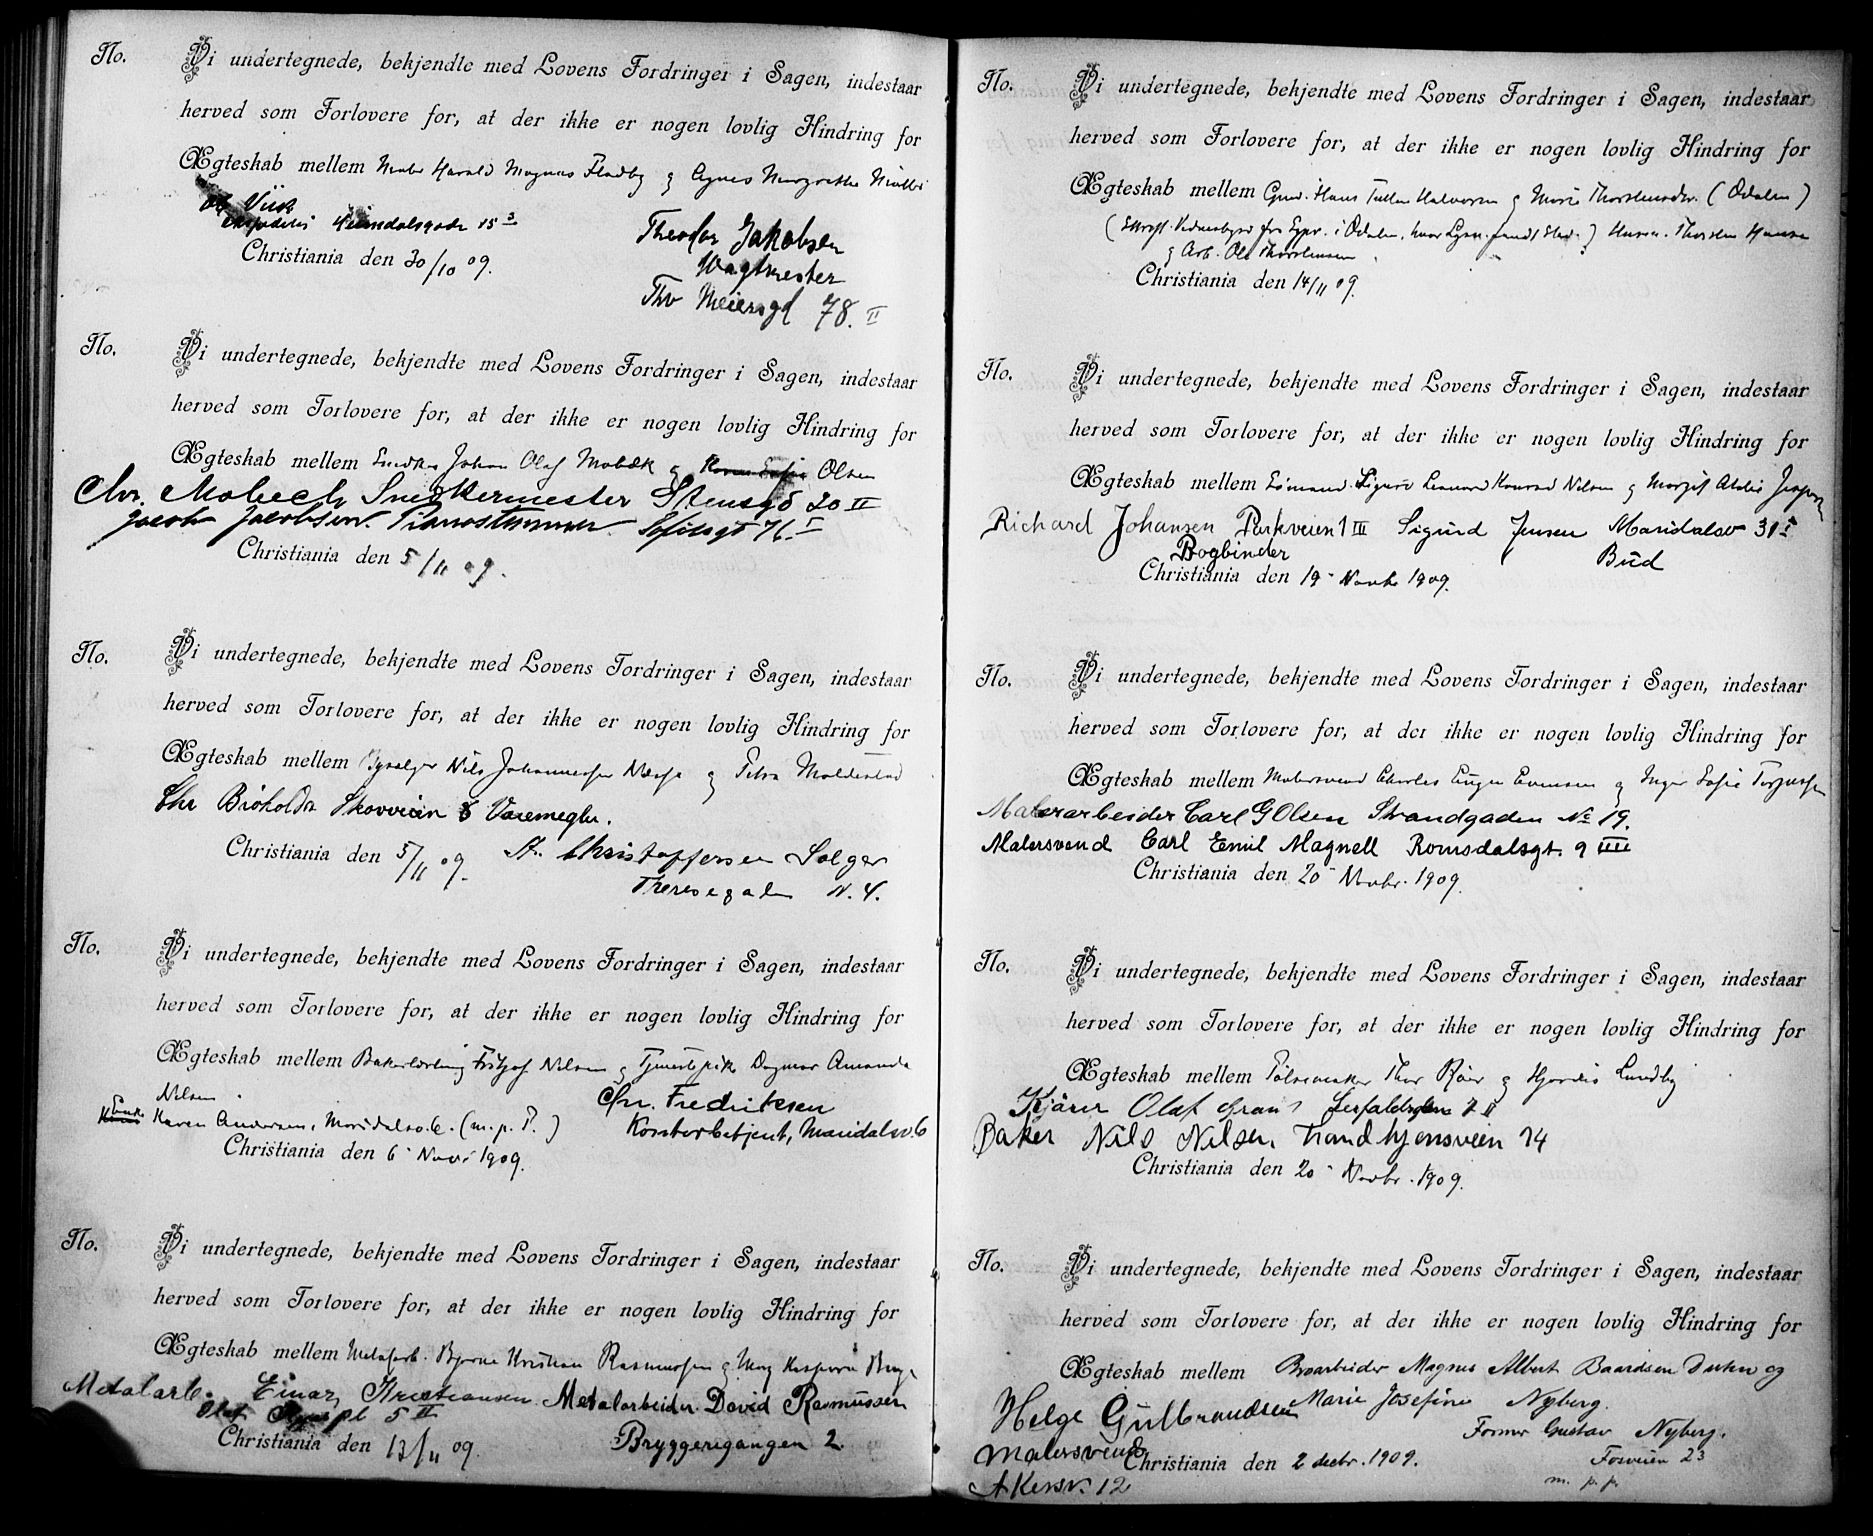 No. Vi undertegnede, bekjendte med Lovens Fordringer i Sagen, indestaar
herved som Forlovere for, at der ikke er nogen lovlig Hindring for
Ægteskab mellem Harald Magnus Fladby og Agnes Margrethe
Viik
15 3 Theodor Jakobsen
Vagtmester
Christiania den 30/10 09.
Thv Meiersgd 78. II
No. Vi undertegnede, bekjendte med Lovens Fordringer i Sagen, indestaar
herved som Forlovere for, at der ikke er nogen lovlig Hindring for
Ægteskab mellem Snedker Johan Olaf Mobæk og Olsen
Chr. Mobech Snedkermester Stensgd 20 II
Jacob Jacobsen. Pianostemmer Sofiesgt 76 I
Christiania den 5/11 09.
No. Vi undertegnede, bekjendte med Lovens Fordringer i Sagen, indestaar
herved som Forlovere for, at der ikke er nogen lovlig Hindring for
Ægteskab mellem Nils Johannessen Næsje og Petra Moldestad
Chr Skovveien 8 Varemegler.
Christiania den 5/11 09. Christoffersen Sælger
Theresegaden N. 4.
No. Vi undertegnede, bekjendte med Lovens Fordringer i Sagen, indestaar
herved som Forlovere for, at der ikke er nogen lovlig Hindring for
Ægteskab mellem Bakerlærling Fritjof Nilsen og Tjenestepike Dagmar Amanda
Nilsen. Chr. Fredriksen
Enke Karen Andersen, Maridalsv. 6. (m. p. P.) Kontorbetjent, Maridalsv. 6
Christiania den 6 Novr 1909.
No. Vi undertegnede, bekjendte med Lovens Fordringer i Sagen, indestaar
herved som Forlovere for, at der ikke er nogen lovlig Hindring for
Ægteskab mellem Metalarb. Bjarne Kristian Rasmussen og
Metalarb. Einar Kristiansen Metalarbeider David Rasmussen
Olaf pl 5 II
Christiania den 13/11 09. Bryggerigangen 2.
No. Vi undertegnede, bekjendte med Lovens Fordringer i Sagen, indestaar
herved som Forlovere for, at der ikke er nogen lovlig Hindring for
Ægteskab mellem Hans Halvorsen og Marie Thorstensdtr. (Odalen)
Thorsten Hansen
og Arb. Ole Thorstensen
Christiania den 14/11 09.
No. Vi undertegnede, bekjendte med Lovens Fordringer i Sagen, indestaar
herved som Forlovere for, at der ikke er nogen lovlig Hindring for
Ægteskab mellem Sigurd Leonard Konrad Nilsen og Margit
Richard Johansen Parkveien 1 III Sigurd Jensen Maridalsv 31 I
Bogbinder Bud
Christiania den 19 Novbr 1909.
No. Vi undertegnede, bekjendte med Lovens Fordringer i Sagen, indestaar
herved som Forlovere for, at der ikke er nogen lovlig Hindring for
Ægteskab mellem Malersvend Charles Eugen Evensen og Inger Sofie
Malerarbeider Carl G Olsen Strandgaden No 19.
Malersvend Carl Emil Magnell Romsdalsgt. 9 IIII
Christiania den 20 Novbr. 1909.
No. Vi undertegnede, bekjendte med Lovens Fordringer i Sagen, indestaar
herved som Forlovere for, at der ikke er nogen lovlig Hindring for
Ægteskab mellem Pølsemaker Thor Røer og Hjørdis Lundby
Kjører Olaf 7 II
Baker Nils Nilsen Trondhjemsveien 14
Christiania den 20 Novbr. 1909.
No. Vi undertegnede, bekjendte med Lovens Fordringer i Sagen, indestaar
herved som Forlovere for, at der ikke er nogen lovlig Hindring for
Ægteskab mellem Magnus Albert Baardsen og
Helge Gulbrandsen Marie Josefine Nyberg.
Malersvend Former Gustav Nyberg.
Christiania den 2 decbr. 1909. Fosveien 23
Akersv. 12 m. p. p.